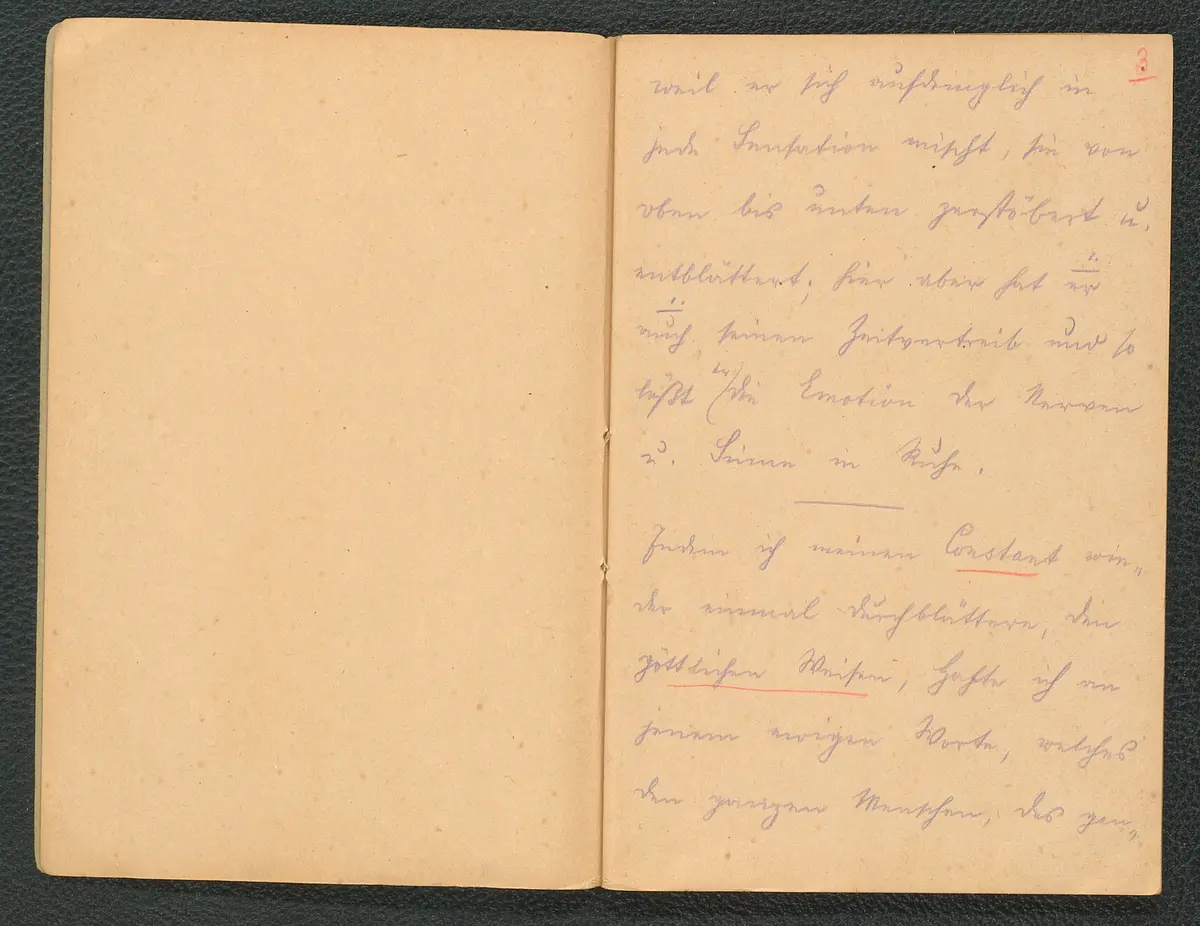 3
weil er sich aufdringlich in
jede Sensation mischt, sie von
oben bis unten zerstöbert u.
entblättert; hier aber hat er
auch seinen Zeitvertreib und so
läßt er die Emotion der Nerven
u. Sinne in Ruhe.
Indem ich meinen Constant wie„
der einmal durchblättere, den
göttlichen Weisen, hafte ich an
jenem ewigen Worte, welches
den ganzen Menschen, des gan„